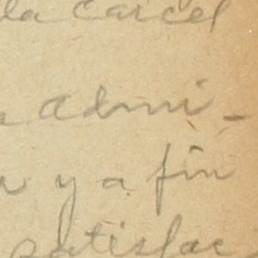 la carcel
admi-
y a fin
satisfac